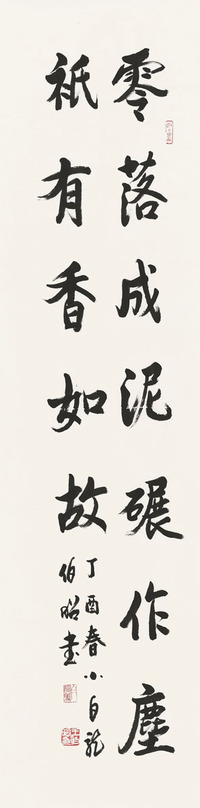 零落成泥碾作塵
祇有香如故
丁酉春小白龍
伯昭書